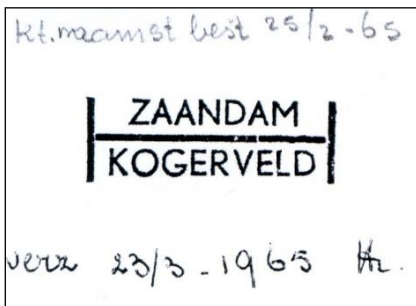 kt. naamst best 25/2-65
ZAANDAM
KOGERVELD
verz 23/3-1965 Hr.